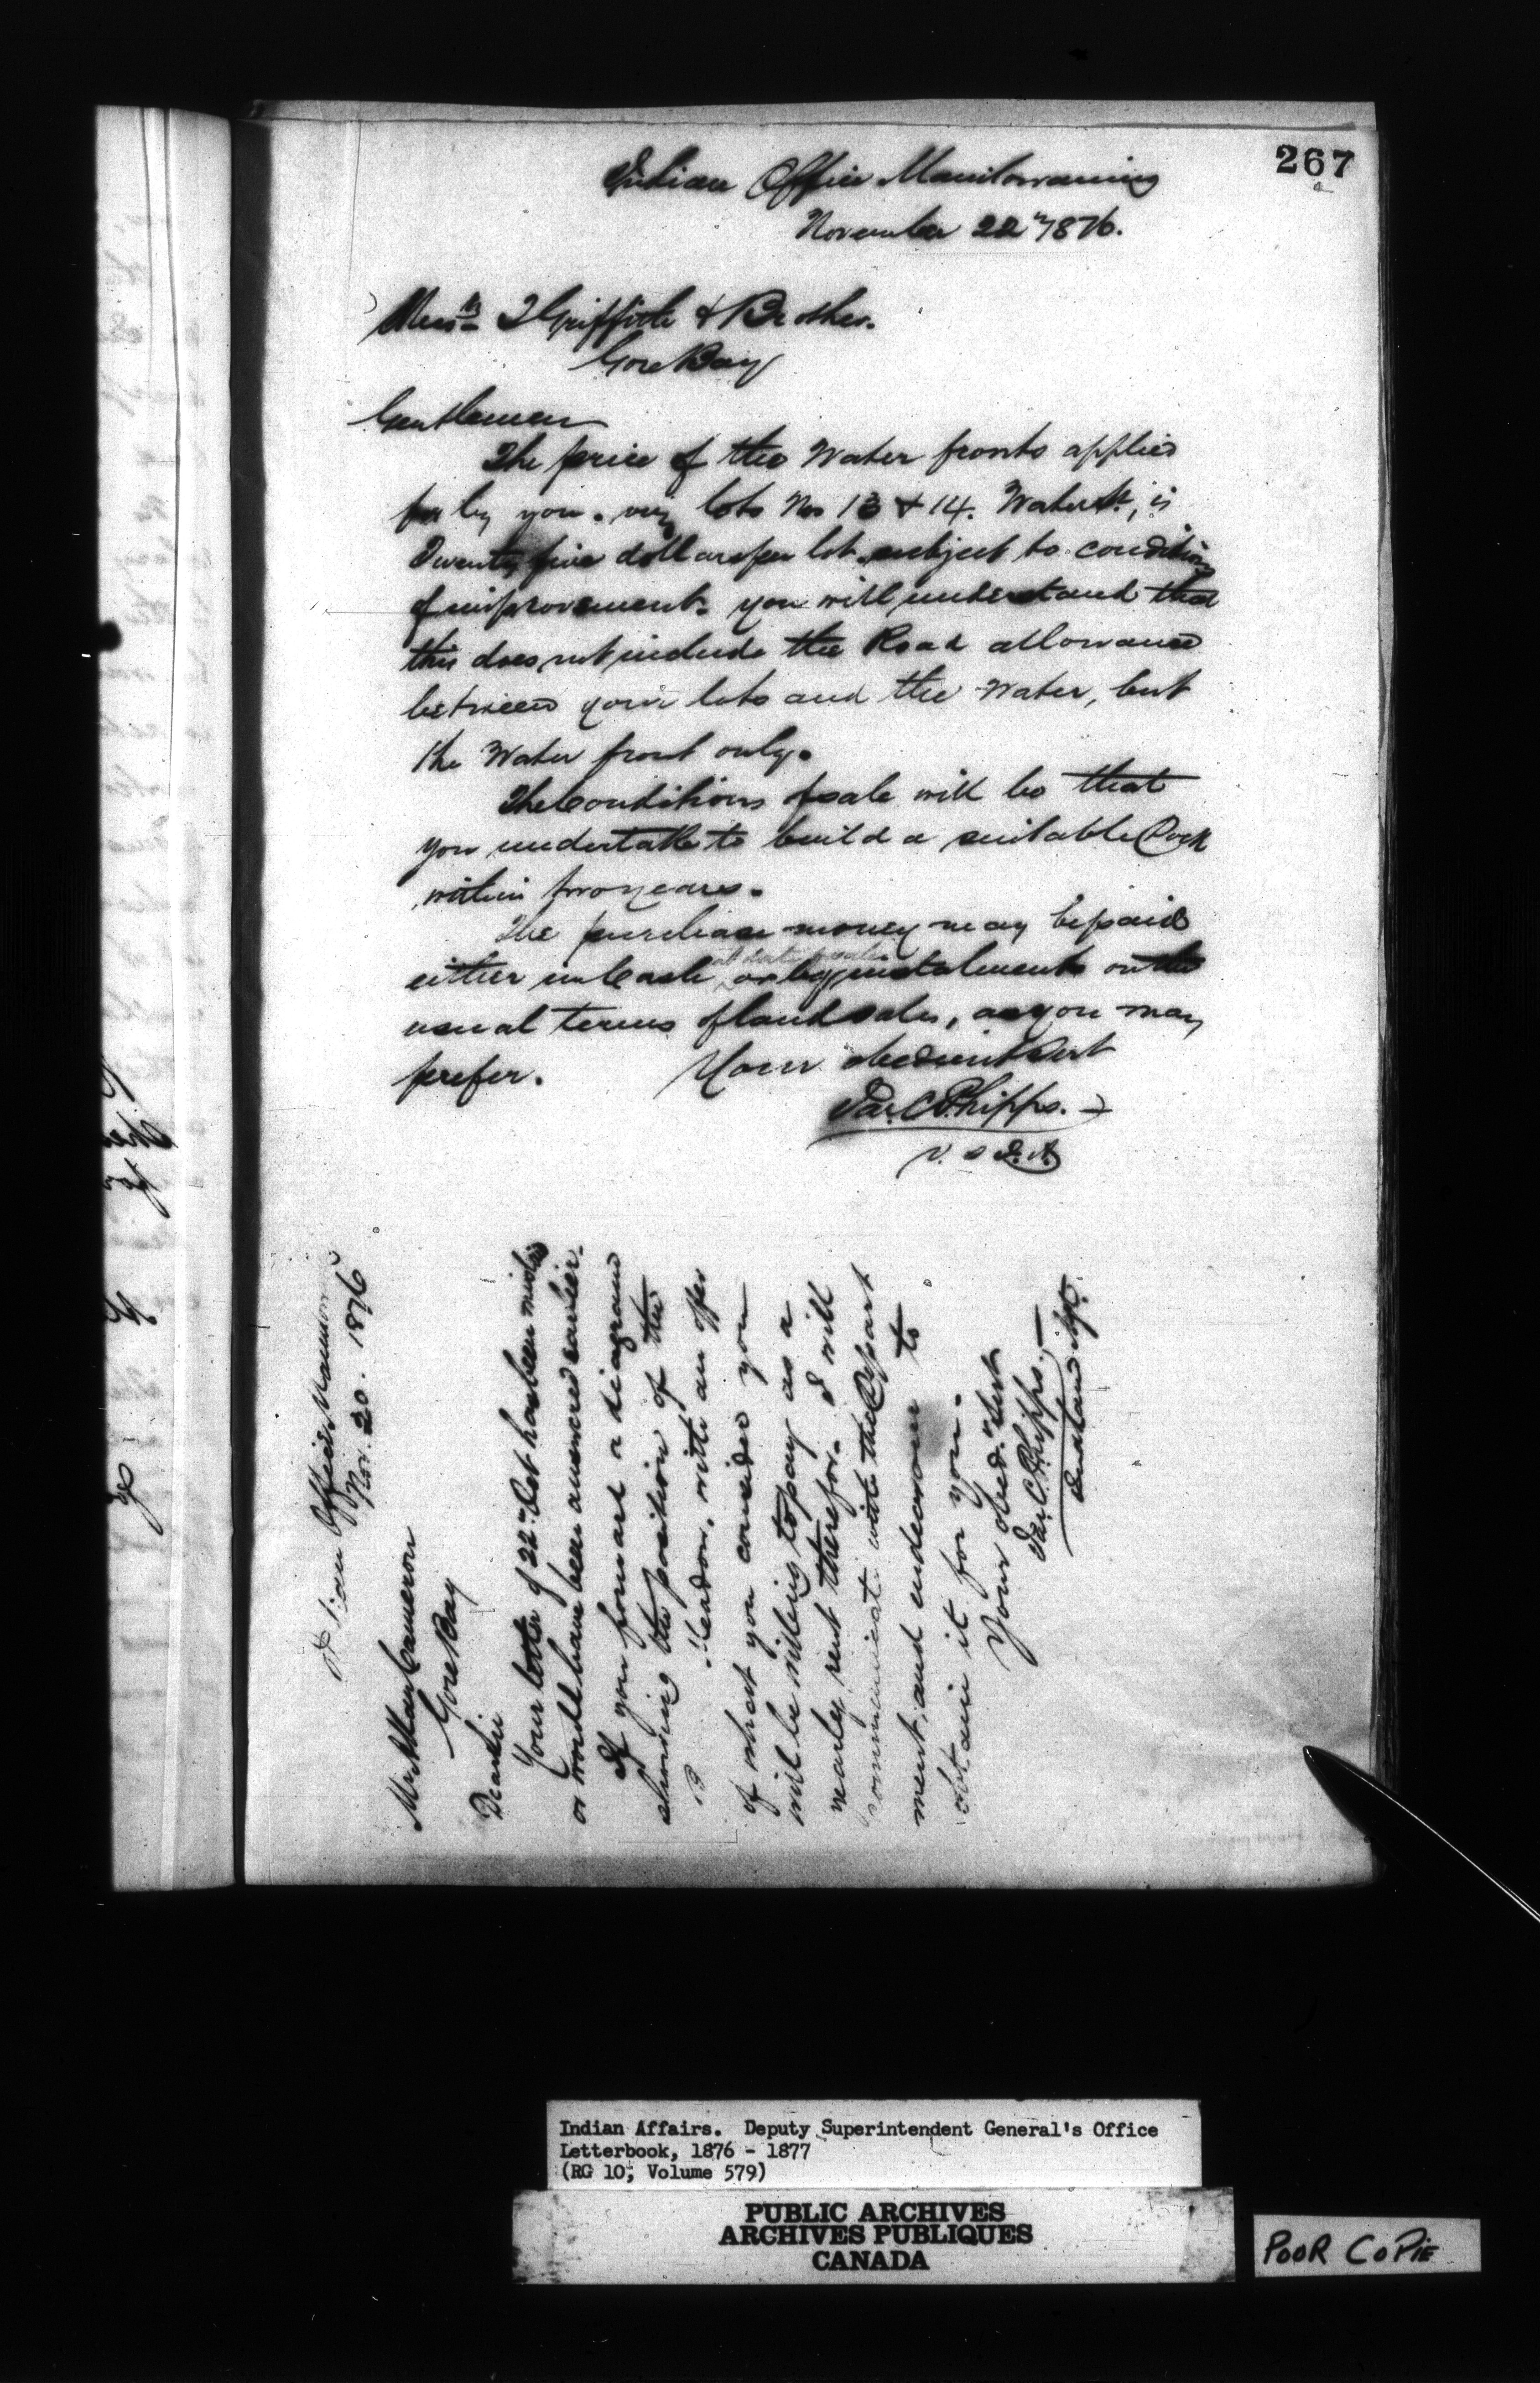 267
Indian Office Manitowaning
November 22nd 1876.
Messrs Griffith & Brother.
Gore Bay
Gentlemen
The price of the Water fronts applied
for by you. viz lots Nos 13 & 14. Water St, is
Twenty five dollars per lot subject to condition
of improvement. you will understand that
this does not include the Road allowance
between your lots and the Water, but
the Water front only.
The Conditions of sale will be that
you undertake to build a suitable Dock
within two years.
The purchase money may be paid
either in Cash at date of sale or by instalments on the
usual terms of land sales, as you may
prefer.
Your obedient Servt
Jas. C Phipps.
V. S I. A
Indian Office
Nov. 20. 1876
Mr Allan Cameron
Gore Bay
Dear Sir
Your letter of 22nd Oct has been
or would have been answered earlier.
If you forward a diagram
showing the position of the
Meadow, with an offer
of what you consider you
will be willing to pay as a
yearly rent therefor. I will
communicate with the Depart
ment, and endeavour to
obtain it for you.
Your obed. Servt
Jas. C. Phipps.
Indian Affairs. Deputy Superintendent General's Office
Letterbook, 1876 - 1877
(RG 10, Volume 579)
PUBLIC ARCHIVES
ARCHIVES PUBLIQUES
CANADA
POOR COPIE